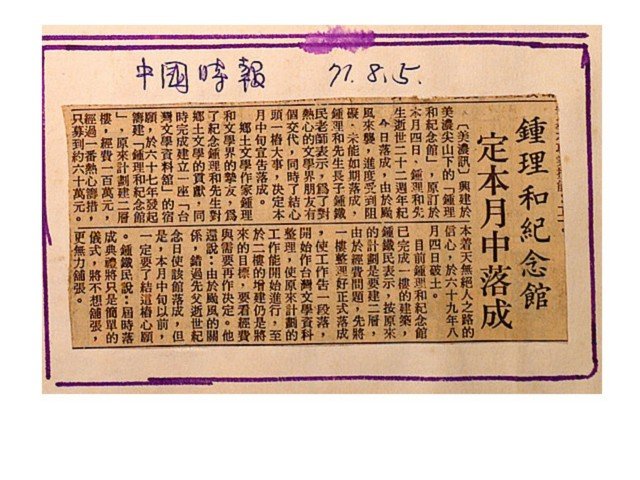 中國時報 71.8.5.
鍾理和紀念館
定本月中落成
〔美濃訊〕興建於
美濃尖山下的「鍾理
和紀念館」,原訂於
本月四日、鍾理和先
生逝世二十二週年紀
今日落成,由於颱
風來襲,進度受到阻
礙,未能如期落成,
鍾理和先生長子鍾鐵
民老師表示,爲了對
熱心的文學界朋友有
個交代,同時了結心
頭一樁大事,決定本
月中旬宣告落成。
鄉土文學作家鍾理
和文學界的摯友,爲
了紀念鍾理和先生對
鄉土文學的貢獻,同
時完成建立一座「台
灣文學資料館」的宿
願,於六十七年發起
籌建「鍾理和紀念館
」,原來計劃建二層
樓,經費一百萬元,
經過一番熱心籌措,
只募到約六十萬元。
本着天無絕人之路的
信心,於六十九年八
月四日破土。
目前鍾理和紀念館
已完成一樓的建築,
鍾鐵民表示,按原來
的計劃是要建二層,
由於經費問題,先將
一樓整理好正式落成
,使工作告一段落,
開始作台灣文學資料
整理,使原來計劃的
工作能開始進行,至
於二樓的增建仍是將
來的目標,要看經費
與需要再作決定。他
還說:由於颱風的關
係,錯過先父逝世紀
念日使該館落成,但
是,本月中旬以前,
一定要了結這樁心願
。鍾鐵民說:屆時落
成典禮將只是簡單的
儀式,將不想舖張,
更無力舖張。